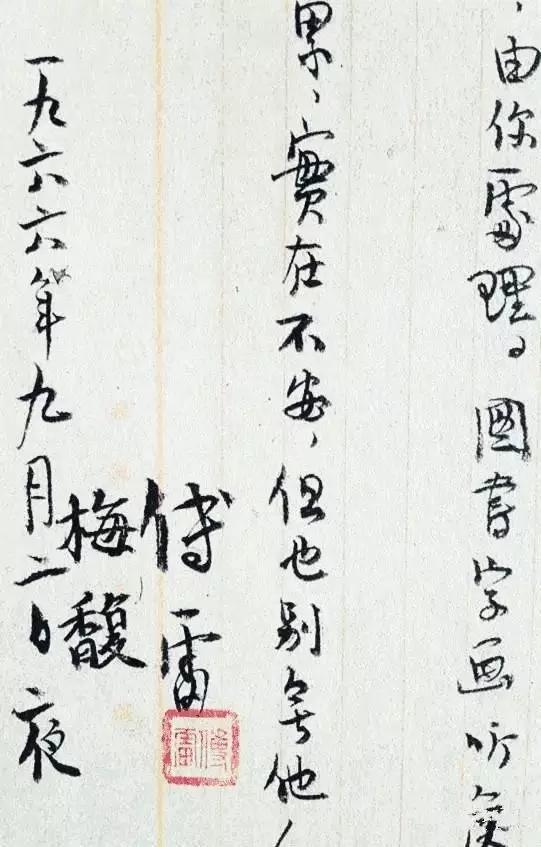 ，由你處理。圖書字画听候
累，實在不安，但也别無他
傅雷
梅馥
一九六六年九月二日夜
傅雷